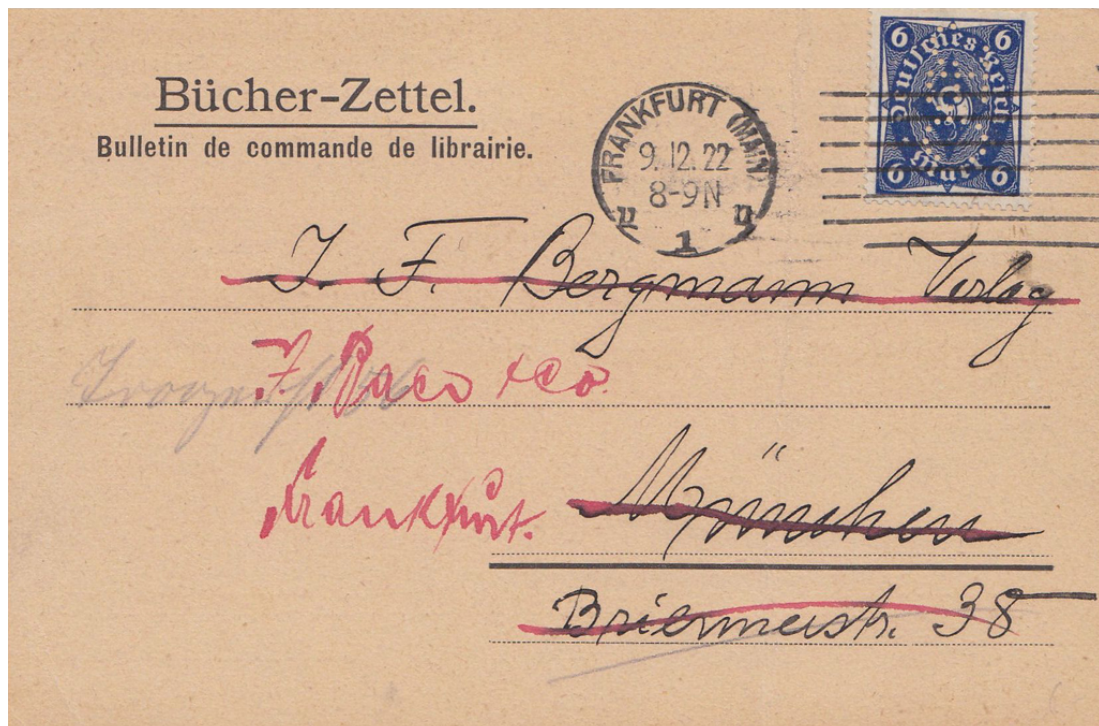 Bücher-Zettel.
Bulletin de commande de librairie.
FRANKFURT (MAIN)
9.12.22
8-9N
1
6 6
Deutsches Reich
Mark
6 6
J. F. Bergmann Verlag
& Co.
Frankfurt.
München
38